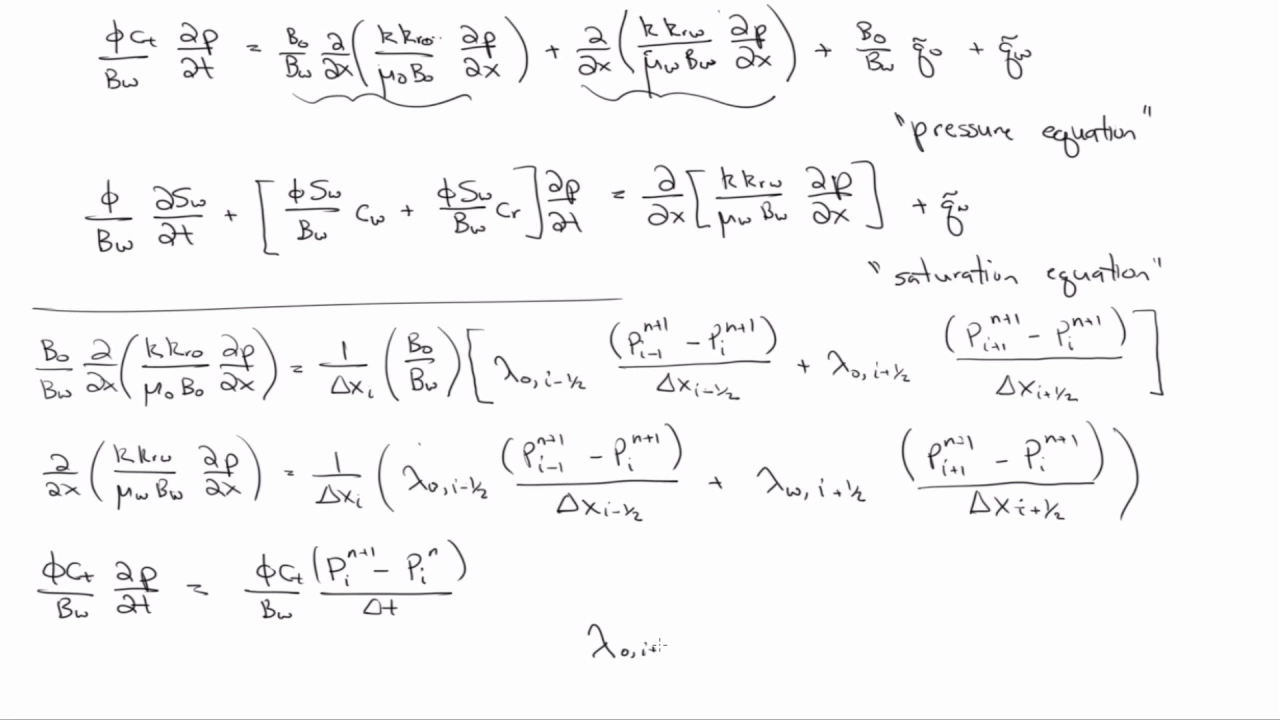 ϕCt/Bw ∂p/∂t = Bo/Bw ∂/∂x (k kro/μoBo ∂p/∂x) + ∂/∂x (k krw/μwBw ∂p/∂x) + Bo/Bw q̃o + q̃w
"pressure equation"
ϕ/Bw ∂Sw/∂t + [ϕSw/Bw Cw + ϕSw/Bw Cr] ∂p/∂t = ∂/∂x [k krw/μwBw ∂p/∂x] + q̃w
"saturation equation"
Bo/Bw ∂/∂x (k kro/μoBo ∂p/∂x) = 1/Δxi (Bo/Bw) [λo,i-½ (Pi-1^n+1 - Pi^n+1)/Δxi-½ + λo,i+½ (Pi+1^n+1 - Pi^n+1)/Δxi+½]
∂/∂x (k krw/μwBw ∂p/∂x) = 1/Δxi (λo,i-½ (Pi-1^n+1 - Pi^n+1)/Δxi-½ + λw,i+½ (Pi+1^n+1 - Pi^n+1)/Δxi+½)
ϕCt/Bw ∂p/∂t = ϕCt/Bw (Pi^n+1 - Pi^n)/Δt
λo,i+